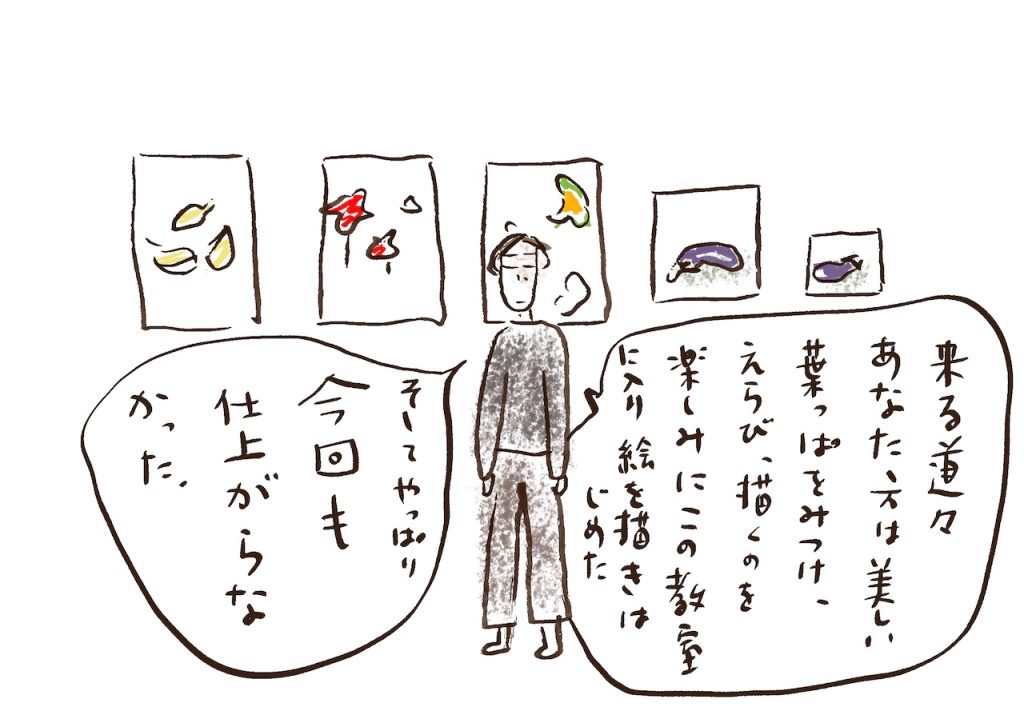 来る道々
あなた方は美しい
葉っぱをみつけ、
えらび、描くのを
楽しみにこの教室
に入り絵を描きは
じめた
そしてやっぱり
今回も
仕上がらな
かった、